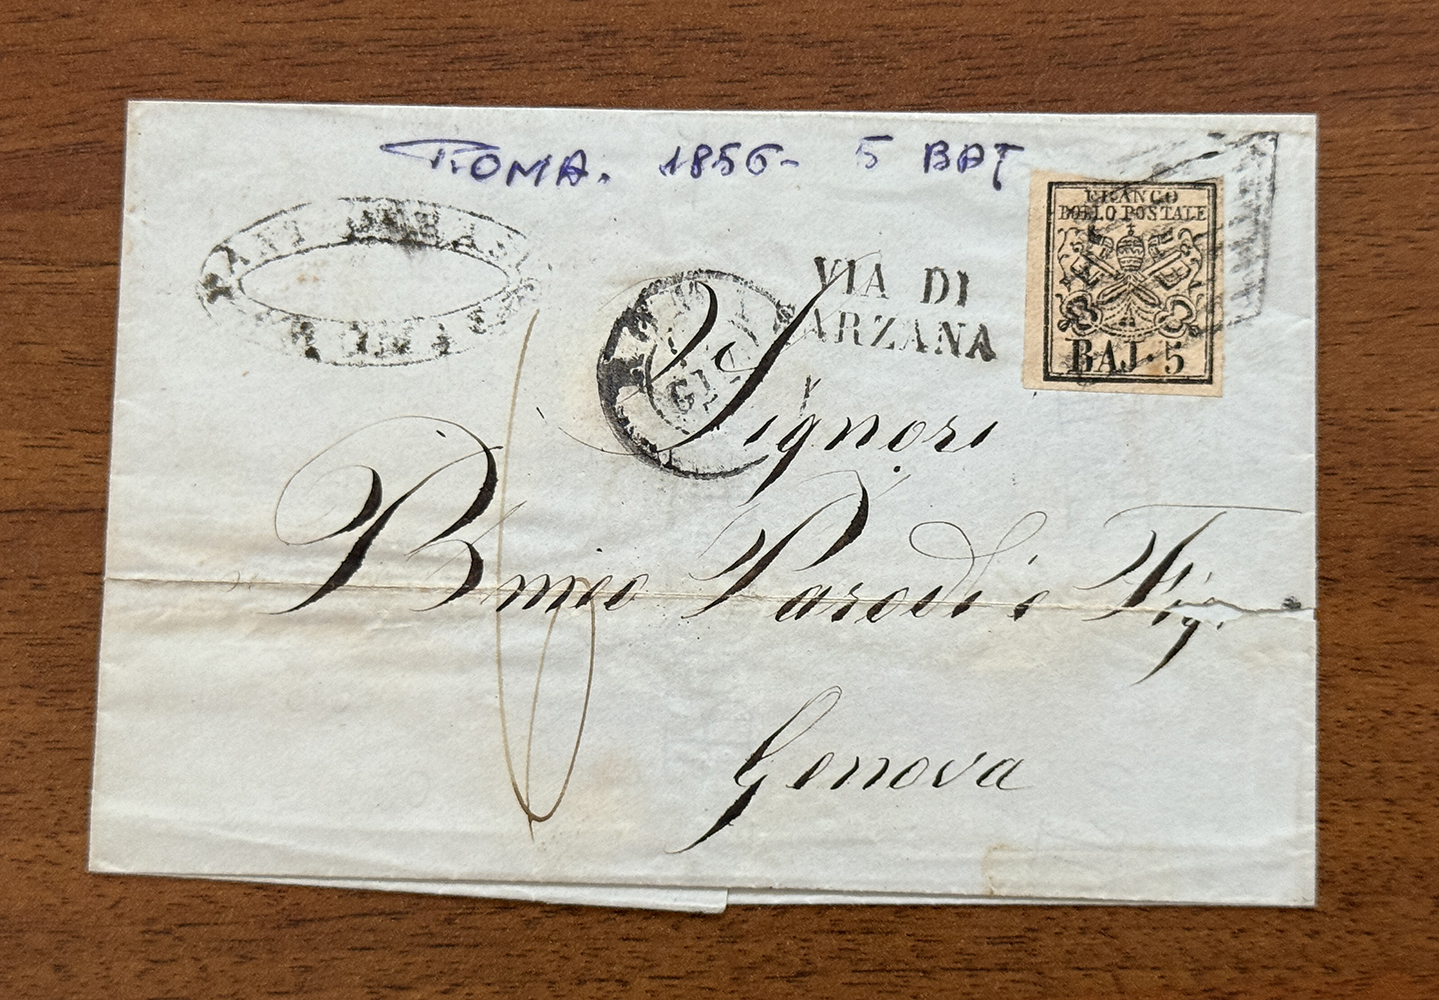 ROMA. 1856- 5 BAJ
FRANCO
BOLLO POSTALE
BAJ. 5
VIA DI
SARZANA
Signori
Bmeo Parodi e Fig.
Genova